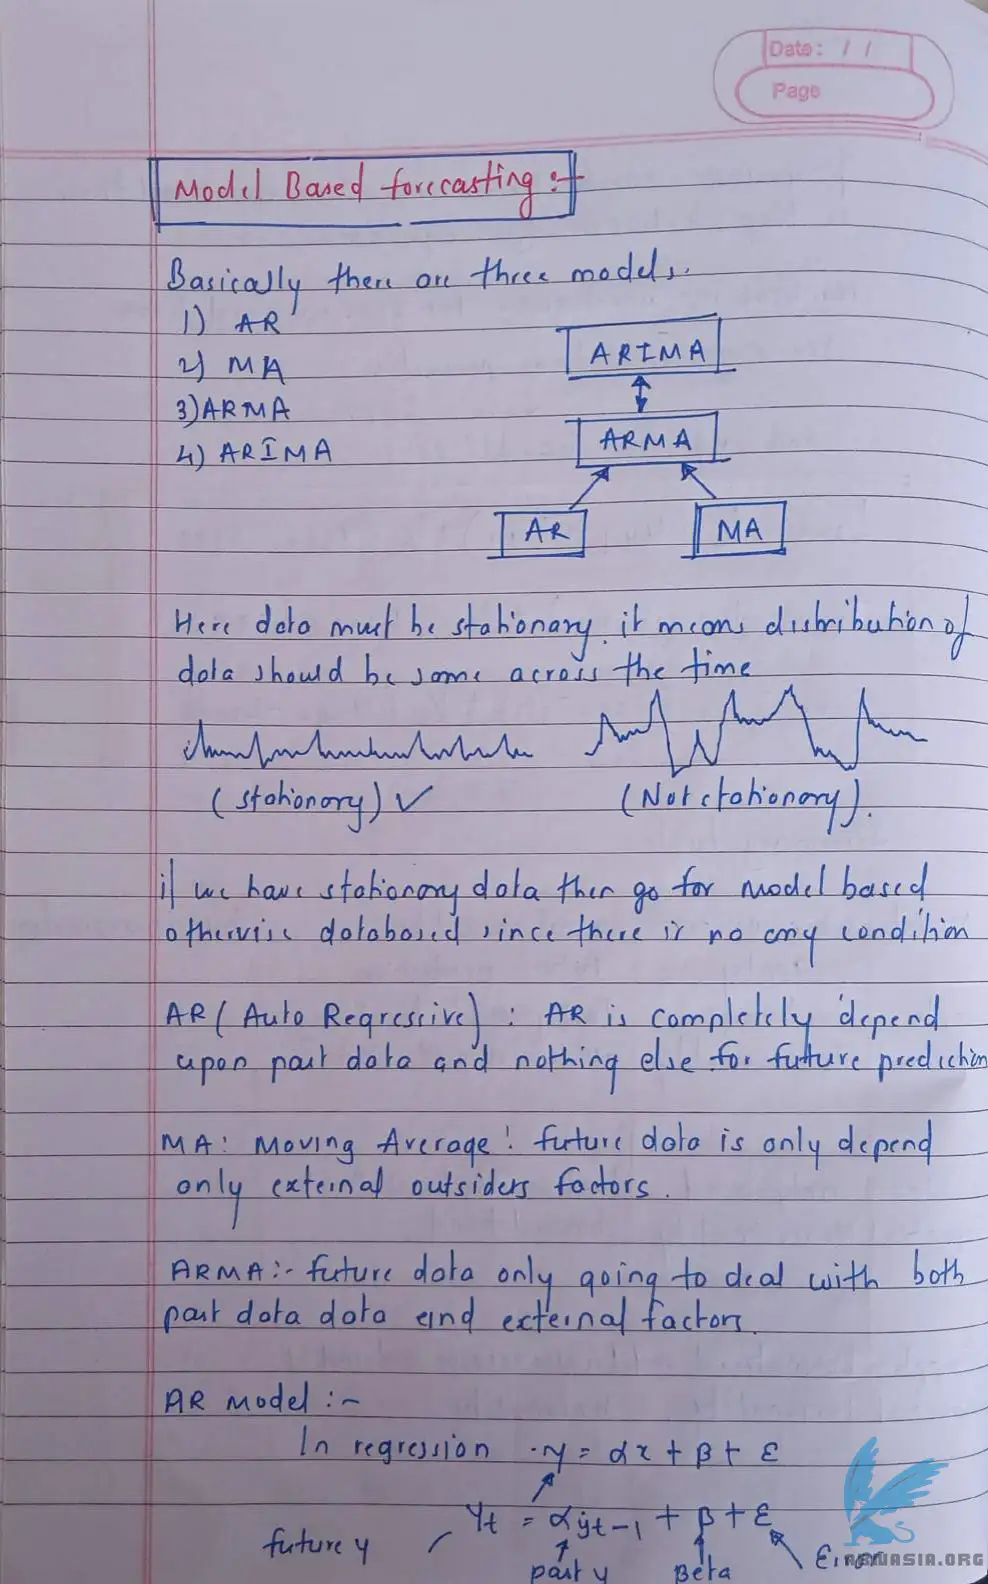 Date: / /
Page
Model Based forecasting :-
Basically there are three models.
1) AR
2) MA
3) ARMA
4) ARIMA
ARIMA
ARMA
AR
MA
Here data must be stationary. it means distribution of
data should be same across the time
(stationary) ✓
(Not stationary).
if we have stationary data then go for model based
otherwise databased since there is no any condition
AR (Auto Regressive) : AR is completely depend
upon past data and nothing else for future prediction
MA : Moving Average : future data is only depend
only external outsiders factors.
ARMA :- future data only going to deal with both
past data data and external factors.
AR model :-
In regression y = αx + β + ε
yt = αyt-1 + β + ε
future y
past y
Beta
Error
ARWASIA.ORG